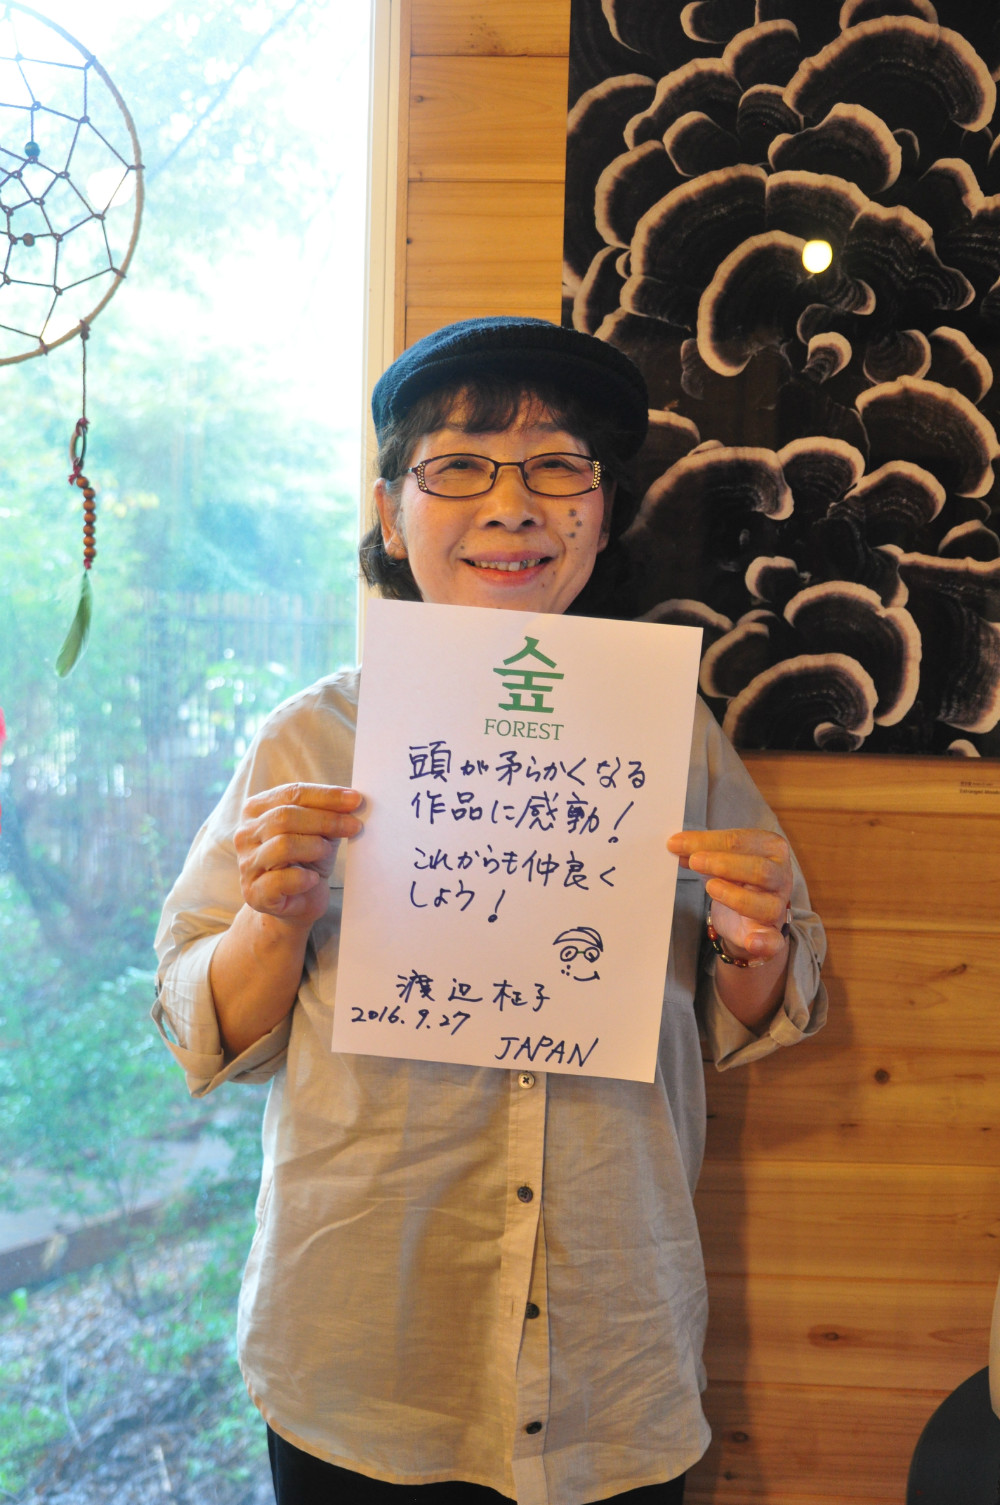 숲
FOREST
頭が矛らかくなる
作品に感動!
これからも仲良く
しよう!
渡辺 桂子
2016.9.27
JAPAN